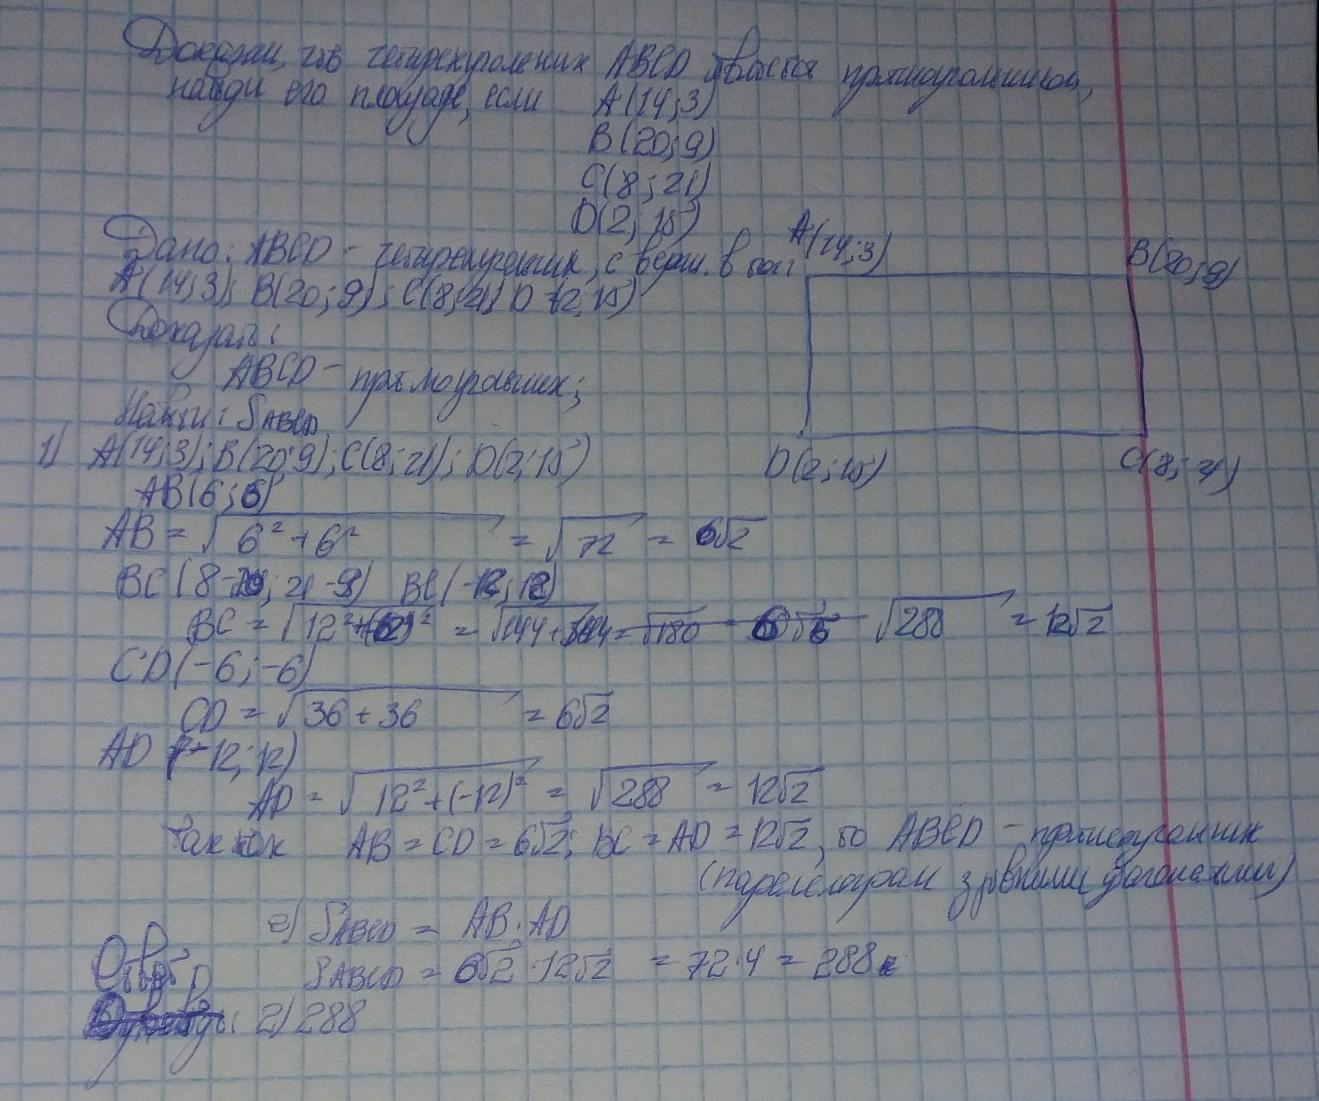 Докажи, что четырехугольник ABCD является прямоугольником,
найди его площадь, если A(14;3)
B(20;9)
C(8;21)
D(2;15)
Дано: ABCD - четырехугольник, с верш. в
A(14;3); B(20;9); C(8;21) D (2;15)
Доказать:
ABCD - прямоугольник;
Найти: SABCD
A(14;3)
B(20;9)
D(2;15)
C(8;21)
1) A(14;3); B(20;9); C(8;21); D(2;15)
AB(6;6)
AB = √6²+6² = √72 = 6√2
BC (8-20; 21-9) BC(-12; 12)
BC = √12²+(12)² = √144+144 = √180 = 6√5 √288 = 12√2
CD(-6;-6)
CD = √36+36 = 6√2
AD (-12;12)
AD = √12²+(-12)² = √288 = 12√2
так как AB = CD = 6√2; BC = AD = 12√2, то ABCD - прямоугольник
(паралелограм з рівними діагоналями)
2) SABCD = AB·AD
SABCD = 6√2 · 12√2 = 72·4 = 288
Ответ
2) 288